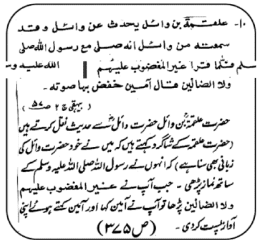 ۱۰۔ علقمة بن وائل يحدث عن وائل وقد
سمعته من وائل انه صلى مع رسول الله صلى
الله عليه وسلم فلما قرأ غير المغضوب عليهم
ولا الضالين قال آمين خفض بها صوته۔
(بیہقی ج ۲ ص ۵۷)
حضرت علقمہؒ بن وائل حضرت وائلؓ سے حدیث نقل کرتے ہیں
(حضرت علقمہ کے شاگرد کہتے ہیں کہ میں نے خود حضرت وائل کی
زبانی بھی سنا ہے) کہ انہوں نے رسول اللہ صلی اللہ علیہ وسلم کے
ساتھ نماز پڑھی۔ جب آپ نے غیر المغضوب علیہم
ولا الضالین پڑھا تو آپ نے آمین کہا اور آمین کہتے ہوئے اپنی
آواز پست کردی۔ (ص ۳۷۵)